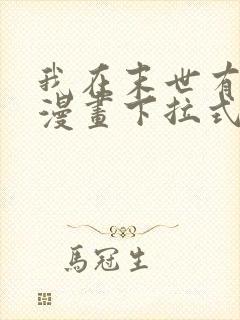 我在末世有
漫畫下拉式
馬冠生